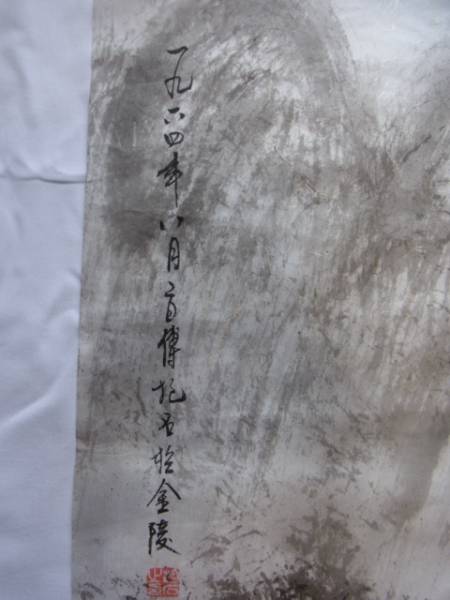 一九六四年八月 傅抱石於金陵